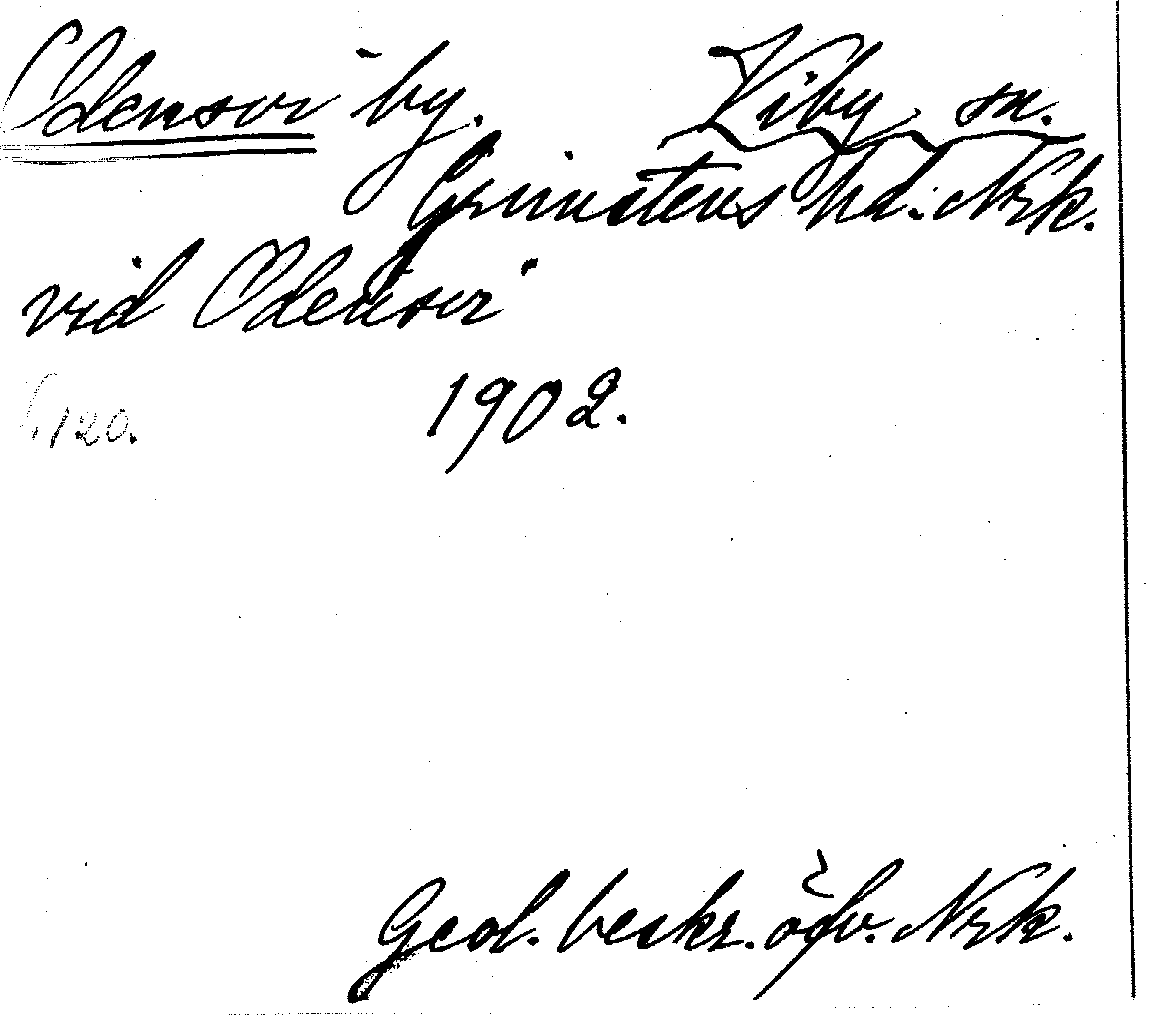 Odensvi by. Viby sn.
Grimstens hd. Nrk.
vid Odensvi
1902.
Geol. beskr. öfv. Nrk.